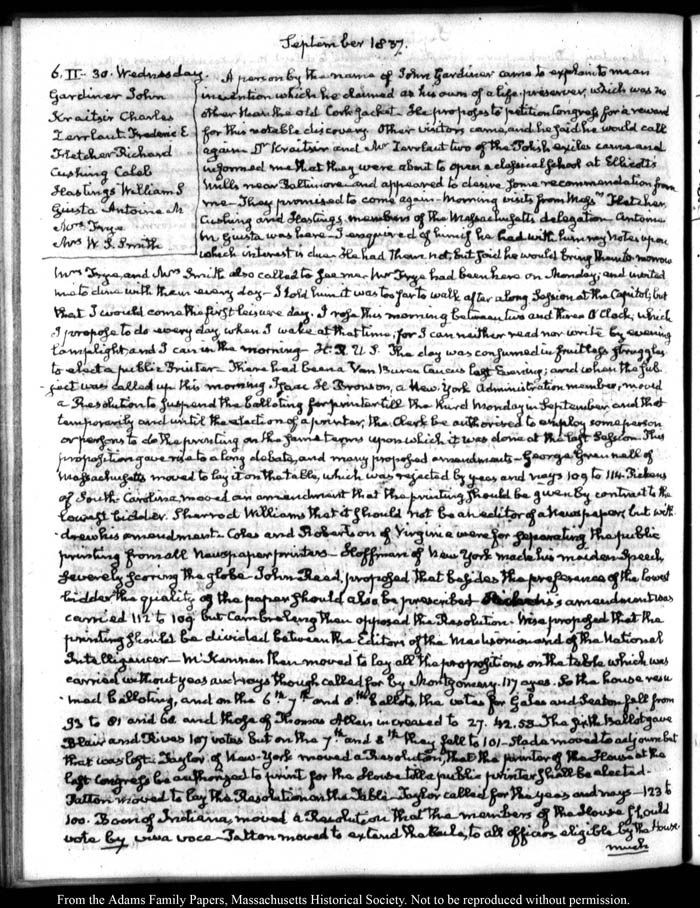 September 1837.
6. II. 30. Wednesday.
Gardiner John
Kraitsir Charles
Zerrlaut Frederic E
Fletcher Richard
Cushing Caleb
Hastings William S
Giusta Antoine M
Mrs Frye
Mrs W. S. Smith
A person by the name of John Gardiner came to explain to me an
invention which he claimed as his own of a life-preserver, which was no
other than the old Cork Jacket. He proposes to petition Congress for a reward
for this notable discovery. Other visitors came, and he said he would call
again. Dr Kraitsir and Mr Zerrlaut two of the Polish exiles came and
informed me that they were about to open a classical School at Ellicott's
Mills near Baltimore and appeared to desire some recommendation from
me. They promised to come again. Morning visits from Messrs Fletcher,
Cushing and Hastings, members of the Massachusetts delegation. Antoine
M. Giusta was here. I enquired of him if he had with him my Notes upon
which interest is due. He had them not, but said he would bring them to morrow
Mrs Frye, and Mrs Smith also called to see me. Mr Frye had been here on Monday, and invited
me to dine with them every day— I told him it was too far to walk after a long Session at the Capitol; but
that I would come the first leisure day. I rose this morning between two and three O'Clock, which
I propose to do every day when I wake at that time, for I can neither read nor write by evening
lamplight, and I can in the morning— H. R. U. S. The day was consumed in fruitless struggles
to elect a public Printer— There had been a Van Buren Caucus last Evening; and when the sub-
ject was called up this morning Isaac H Bronson, a New-York Administration member, moved
a Resolution to suspend the balloting for printer till the third Monday in September and that
temporarily and until the election of a printer, the Clerk be authorised to employ some person
or persons to do the printing on the same terms upon which it was done at the last Session. This
proposition gave rise to a long debate, and many proposed amendments— George Grennell of
Massachusetts moved to lay it on the table, which was rejected by yeas and nays 109 to 114. Pickens
of South-Carolina, moved an amendment that the printing should be given by contract to the
lowest bidder. Sherrod Williams that it should not be an editor of a Newspaper, but with-
drew his amendment. Coles and Robertson of Virginia were for separating the public
printing from all Newspaper printers— Hoffman of New York made his maiden Speech,
severely scoring the Globe. John Reed, proposed that besides the preference of the lowest
bidder the quality of the paper should also be prescribed Pickens's amendment was
carried 112 to 109 but Cambreleng then opposed the Resolution. Wise proposed that the
printing should be divided between the Editors of the Madisonian and of the National
Intelligencer— McKennan then moved to lay all the propositions on the table which was
carried without yeas and nays though called for by Montgomery. 117 ayes. So the house resu
med balloting, and on the 6th 7th and 8th ballots, the votes for Gales and Seaton fell from
93 to 81 and 62 and those of Thomas Allen increased to 27. 42. 58. The sixth Ballot gave
Blair and Rives 107 votes but on the 7th and 8th they fell to 101— Slade moved to adjourn but
that was lost. Taylor of New-York moved a Resolution, that the printer of the House at the
last Congress be authorised to print for the House till a public printer shall be elected.
Patton moved to lay the Resolution on the Table Taylor called for the yeas and nays— 123 to
100. Boon of Indiana, moved a Resolution that the members of the House should
vote by viva voce— Patton moved to extend the Rule, to all officers eligible by the House
much
From the Adams Family Papers, Massachusetts Historical Society. Not to be reproduced without permission.